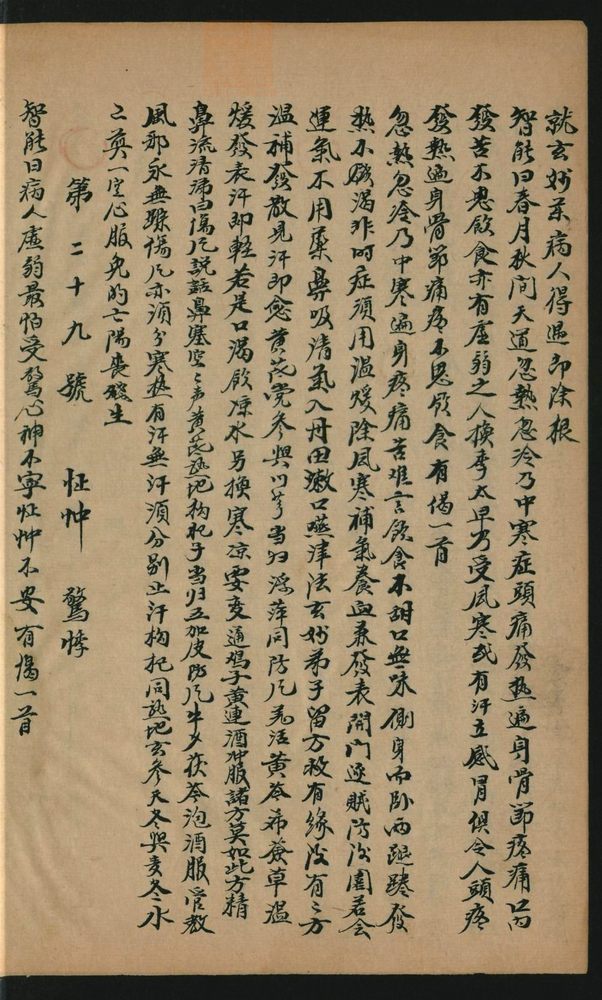 就玄妙茶病人得過即除根
智能曰春月秋间天道忽熱忽冷乃中寒症頭痛發热遍身骨節疼痛口内
發苦不思飲食亦有虛弱之人换季太早乃受風寒或有汗立感冒俱令人頭疼
發热遍身骨節痛疼不思飲食有偈一首
忽熱忽冷乃中寒遍身疼痛苦难言飲食不胡口無味側身而卧两腿踡發
热不礙渴非时症須用温煖除風寒補氣養血兼發表開門逐贼防汝園若会
運氣不用藥鼻吸清氣入丹田漱口嚥津法玄妙弟子留方救有缘没有三方
温補發散見汗即愈黄芪党参與川芎当归浮萍同防风羌活黄芩希薟草温
煖發表汗即軽若是口渴飲凉水另换寒凉要变通鸡子黄連酒冲服諸方莫如此方精
鼻流清涕曰傷风説話鼻塞空三声黄芪熟地枸杞子当归五加皮防风牛夕茯苓泡酒服管教
風邪永無踪傷风亦須分寒热有汗無汗須分别止汗枸杞同熟地玄参天冬與麦冬水
二煎一空心服免的亡陽喪殘生
第二十九號 怔忡 驚悸
智能曰病人虛弱最怕受驚心神不寧怔忡不安有偈一首